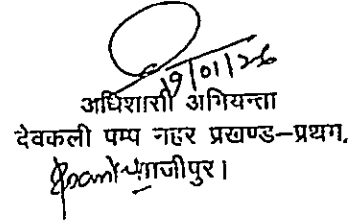 19/01/26
अधिशासी अभियन्ता
देवकली पम्प नहर प्रखण्ड-प्रथम,
गाजीपुर।